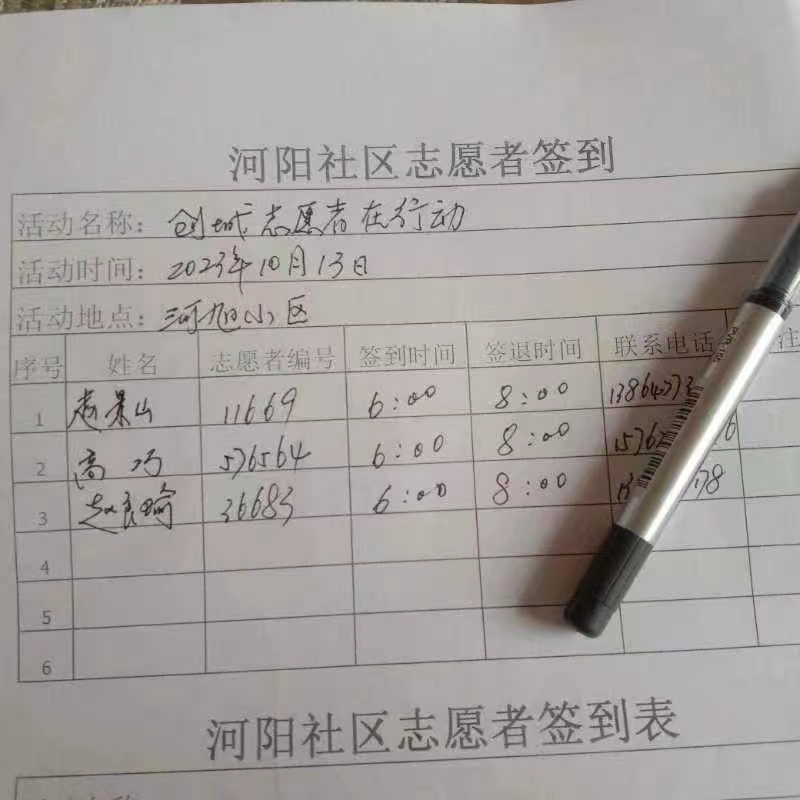 河阳社区志愿者签到
活动名称：创城志愿者在行动
活动时间：2023年10月13日
活动地点：河旭小区
序号 姓名 志愿者编号 签到时间 签退时间 联系电话 注
1 赵景山 11669 6:00 8:00
2 高巧 576564 6:00 8:00
3 赵良瑜 36683 6:00 8:00
4
5
6
河阳社区志愿者签到表